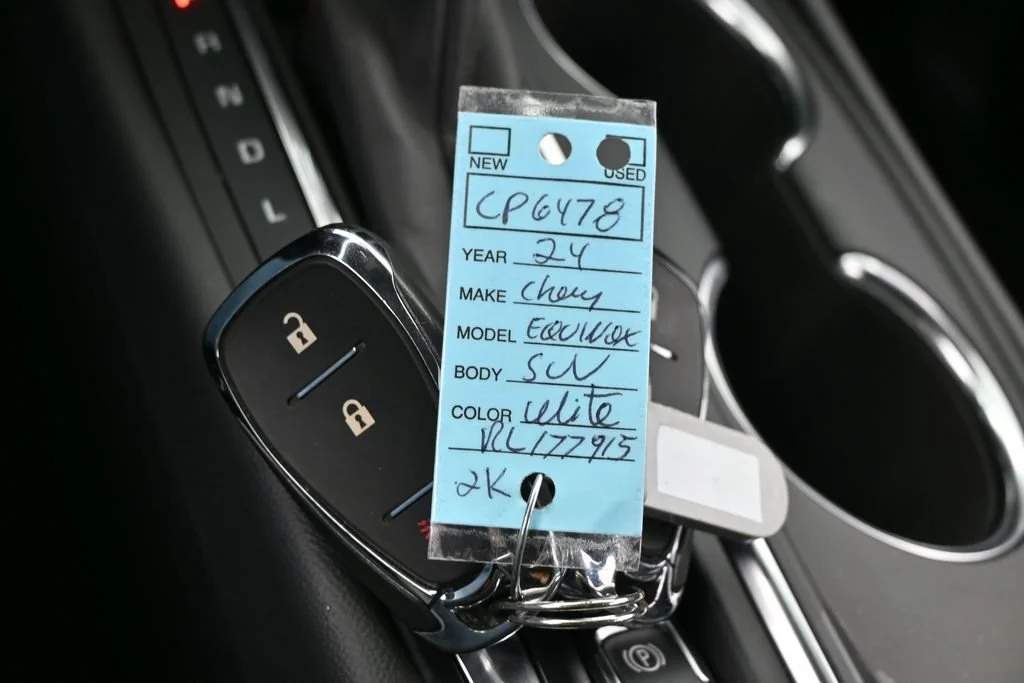 R
N
D
L
NEW USED
CP6478
YEAR 24
MAKE Chevy
MODEL EQUINOX
BODY SUV
COLOR White
RL177915
2K
P